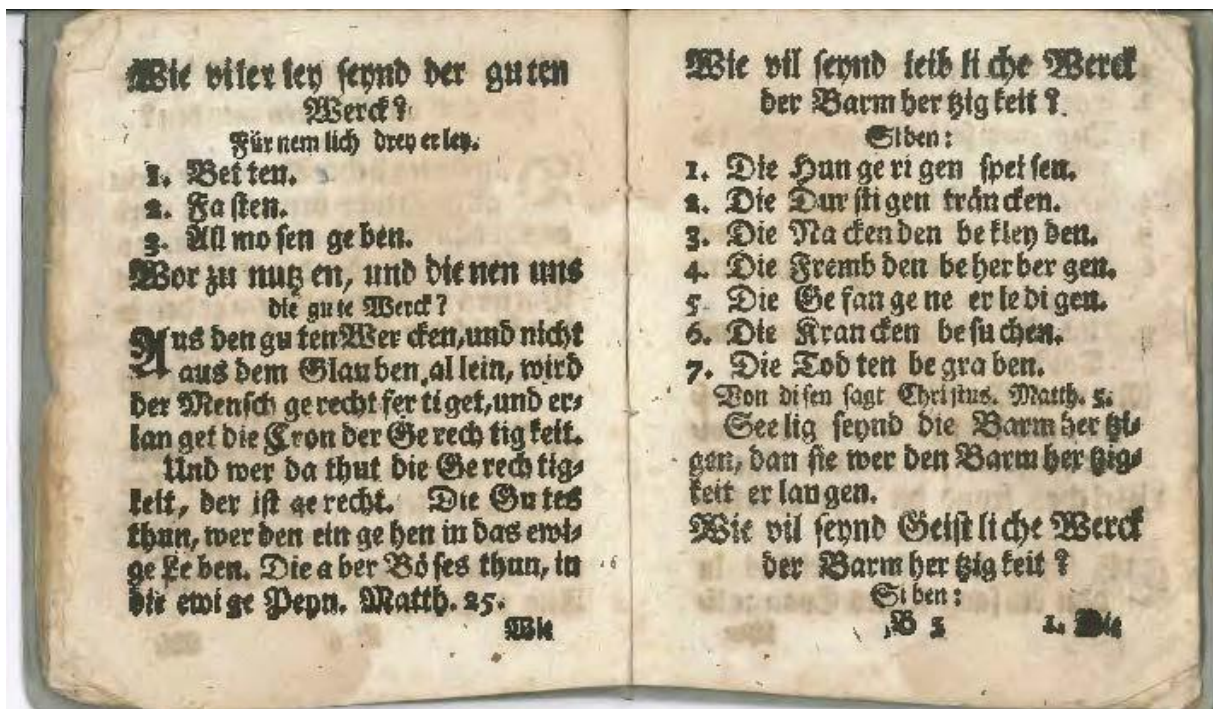 Wie viler ley seynd der guten
Werck?
Für nem lich drey er ley.
1. Bet ten.
2. Fa sten.
3. All mo sen ge ben.
Wor zu nutz en, und die nen uns
die gute Werck?
Aus den gu ten Wer cken, und nicht
aus dem Glau ben al lein, wird
der Mensch ge recht fer ti get, und er-
lan get die Cron der Ge rech tig keit.
Und wer da thut die Ge rech tig-
keit, der ist ge recht. Die Gutes
thun, wer den ein ge hen in das ewi-
ge Le ben. Die a ber Bö ses thun, in
die ewi ge Peyn. Matth. 25.
Wie
Wie vil seynd leib li che Werck
der Barm her tzig keit?
Siben:
1. Die Hun ge ri gen spei sen.
2. Die Dur sti gen trän cken.
3. Die Na cken den be kley den.
4. Die Fremb den be her ber gen.
5. Die Ge fan ge ne er le di gen.
6. Die Kran cken be su chen.
7. Die Tod ten be gra ben.
Von di sen sagt Christus. Matth. 5.
See lig seynd die Barm her tzi-
gen, dan sie wer den Barm her tzig-
keit er lan gen.
Wie vil seynd Geist li che Werck
der Barm her tzig keit?
Si ben:
B 1. Die